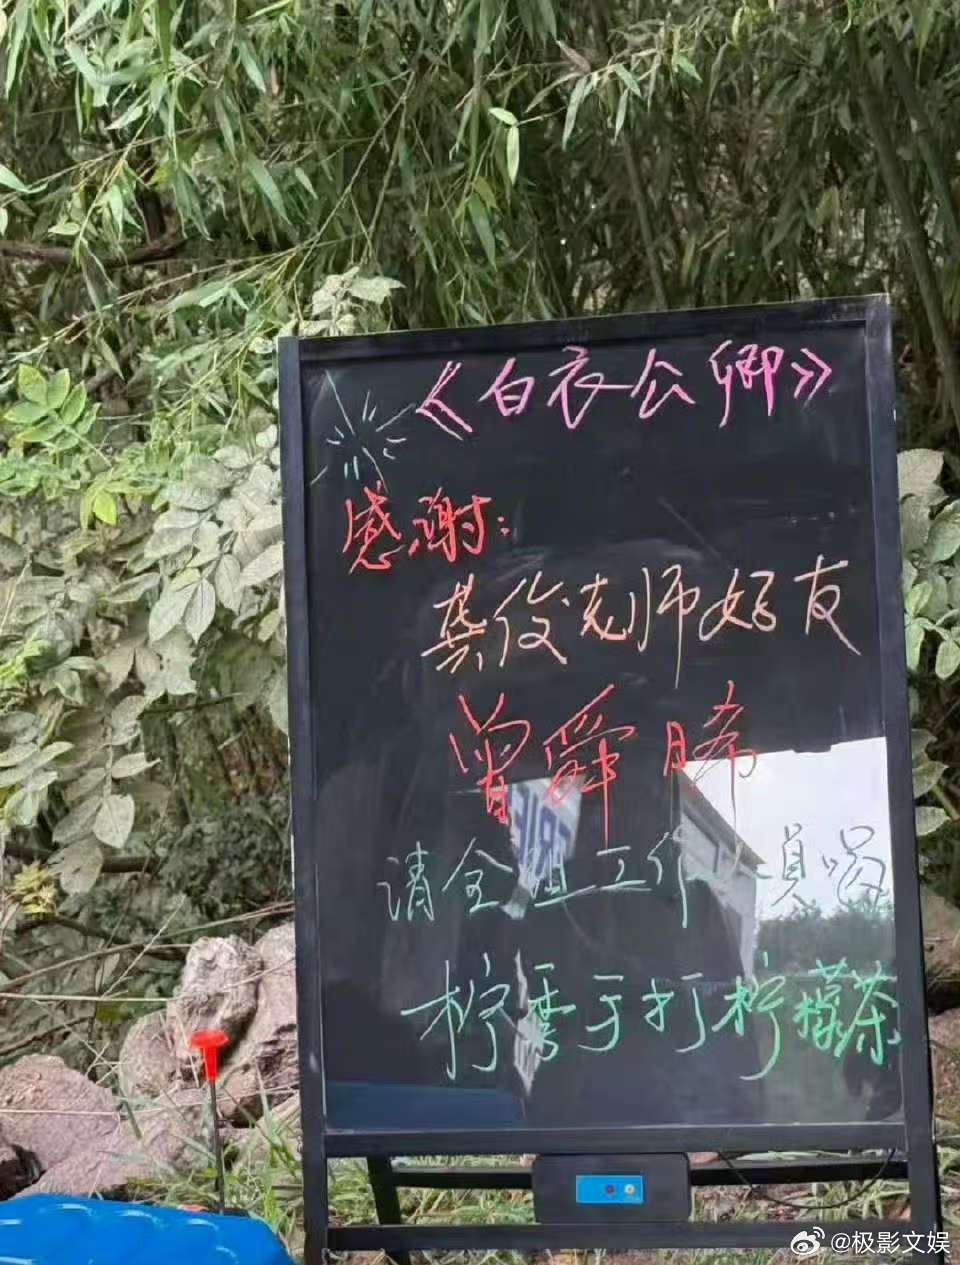 《白衣公卿》
感谢：
龚俊老师好友
曾舜晞
请全组工作人员喝
柠季手打柠檬茶
@极影文娱